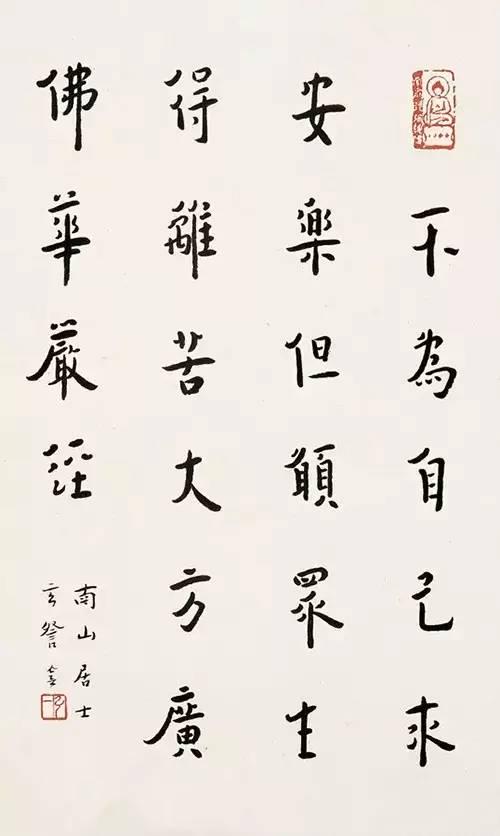 不為自己求
安樂但願眾生
得離苦大方廣
佛華嚴經
南山居士